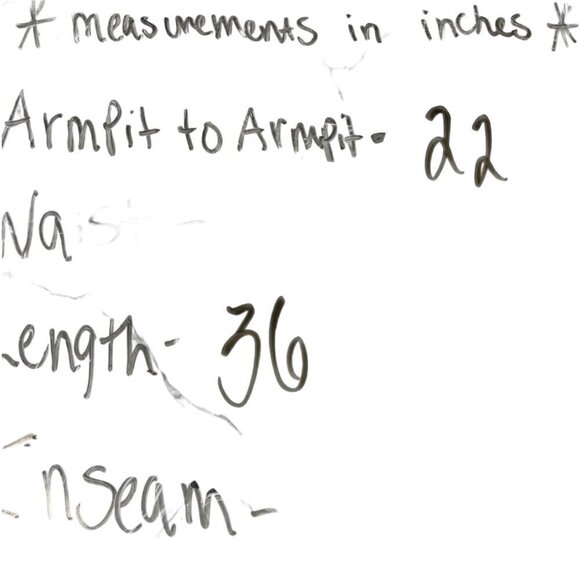 * measurements in inches *
ArmPit to Armpit- 22
Waist -
Length- 36
Inseam -